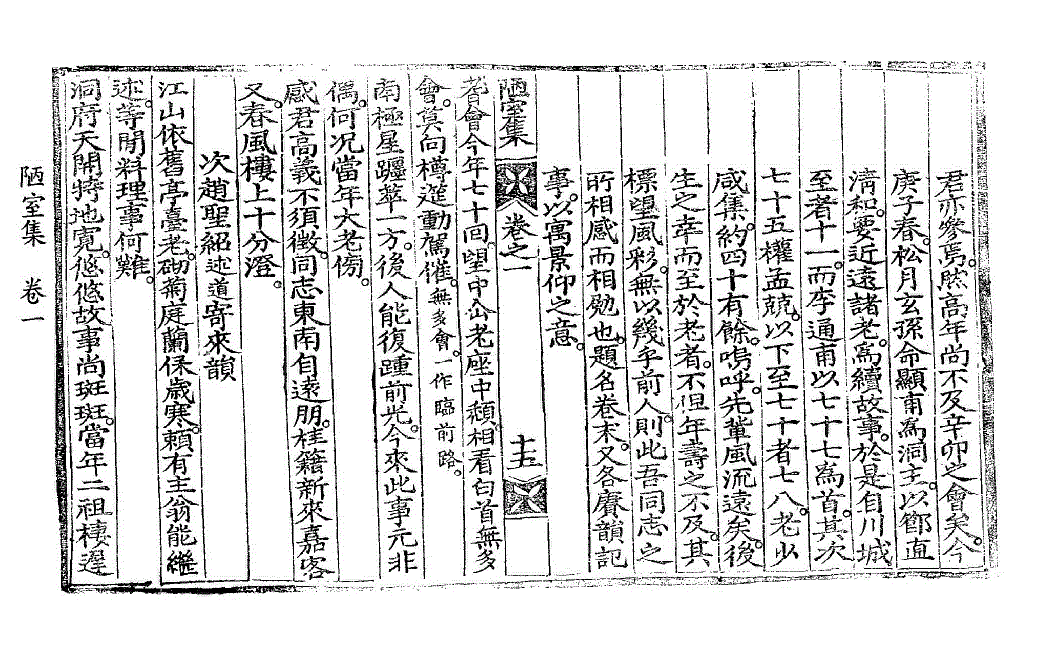 君亦參焉。然高年尚不及辛卯之會矣。今
庚子春。松月玄孫命顯甫爲洞主。以鄒直
淸和。要近遠諸老。爲續故事。於是自川城
至者十一。而李通甫以七十七爲首。其次
七十五權孟兢。以下至七十者七八。老少
咸集。約四十有餘。嗚呼。先輩風流遠矣。後
生之幸而至於老者。不但年壽之不及。其
標望風彩。無以幾乎前人。則此吾同志之
所相感而相勉也。題名卷末。又各賡韻記
事。以寓景仰之意。
陋室集 卷之一 十五
耆會今年七十回。望中仚老座中頹。相看白首無多
會。莫向樽筵動駕催。無多會。一作臨前路。
南極星躔萃一方。後人能復踵前光。今來此事元非
偶。何况當年大老傍。
感君高義不須徵。同志東南自遠朋。桂籍新來嘉客
又。春風樓上十分澄。
次趙聖紹述道寄來韻
江山依舊亭臺老。砌菊庭蘭保歲寒。賴有主翁能繼
述。等閒料理事何難。
洞府天開特地寬。悠悠故事尚斑斑。當年二祖棲遲
陋室集 卷一